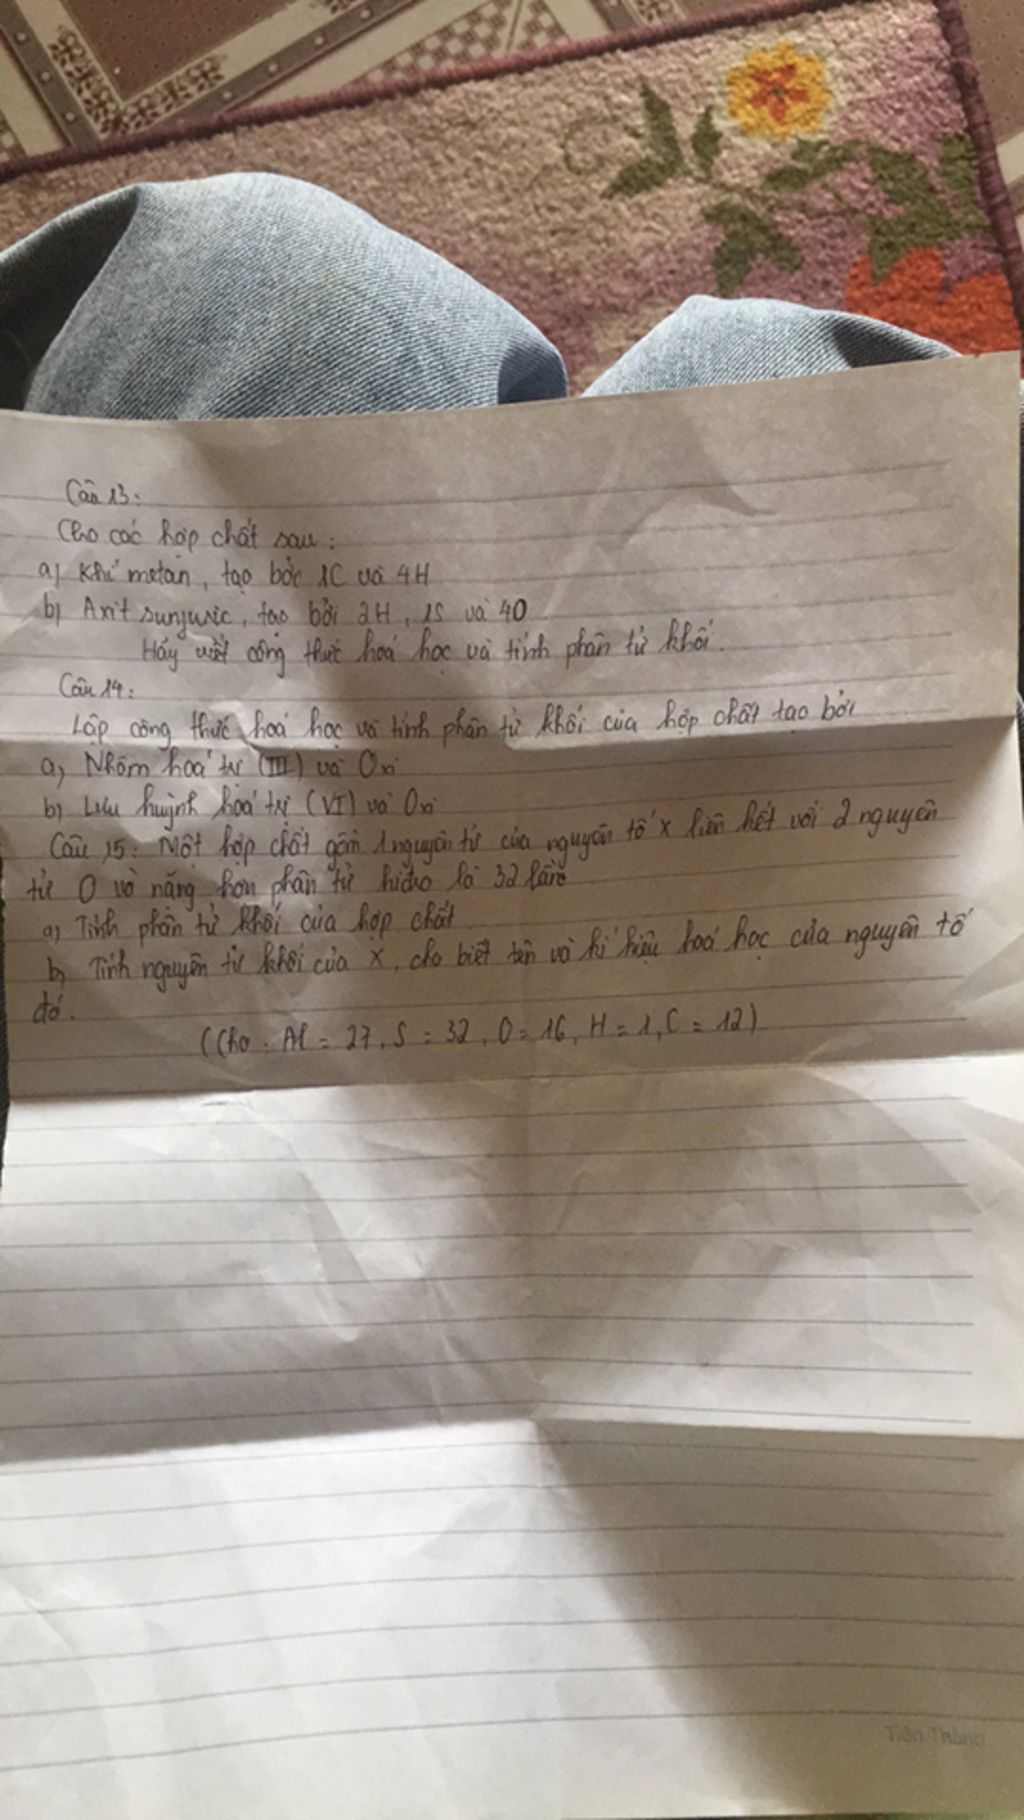 Câu 13:
Cho các hợp chất sau:
a) Khí metan, tạo bởi 1C và 4H
b) Axit sunjuric, tạo bởi 2H, 1S và 4O
Hãy viết công thức hoá học và tính phân tử khối.
Câu 14:
Lập công thức hoá học và tính phân tử khối của hợp chất tạo bởi
a) Nhôm hoá trị (III) và Oxi
b) Lưu huỳnh hoá trị (VI) và Oxi
Câu 15: Một hợp chất gồm 1 nguyên tử của nguyên tố X liên kết với 2 nguyên
tử O và nặng hơn phân tử hiđro là 32 lần
a) Tính phân tử khối của hợp chất
b) Tính nguyên tử khối của X, cho biết tên và kí hiệu hoá học của nguyên tố
đó.
(Cho: Al = 27, S = 32, O = 16, H = 1, C = 12)
Tiến Thành